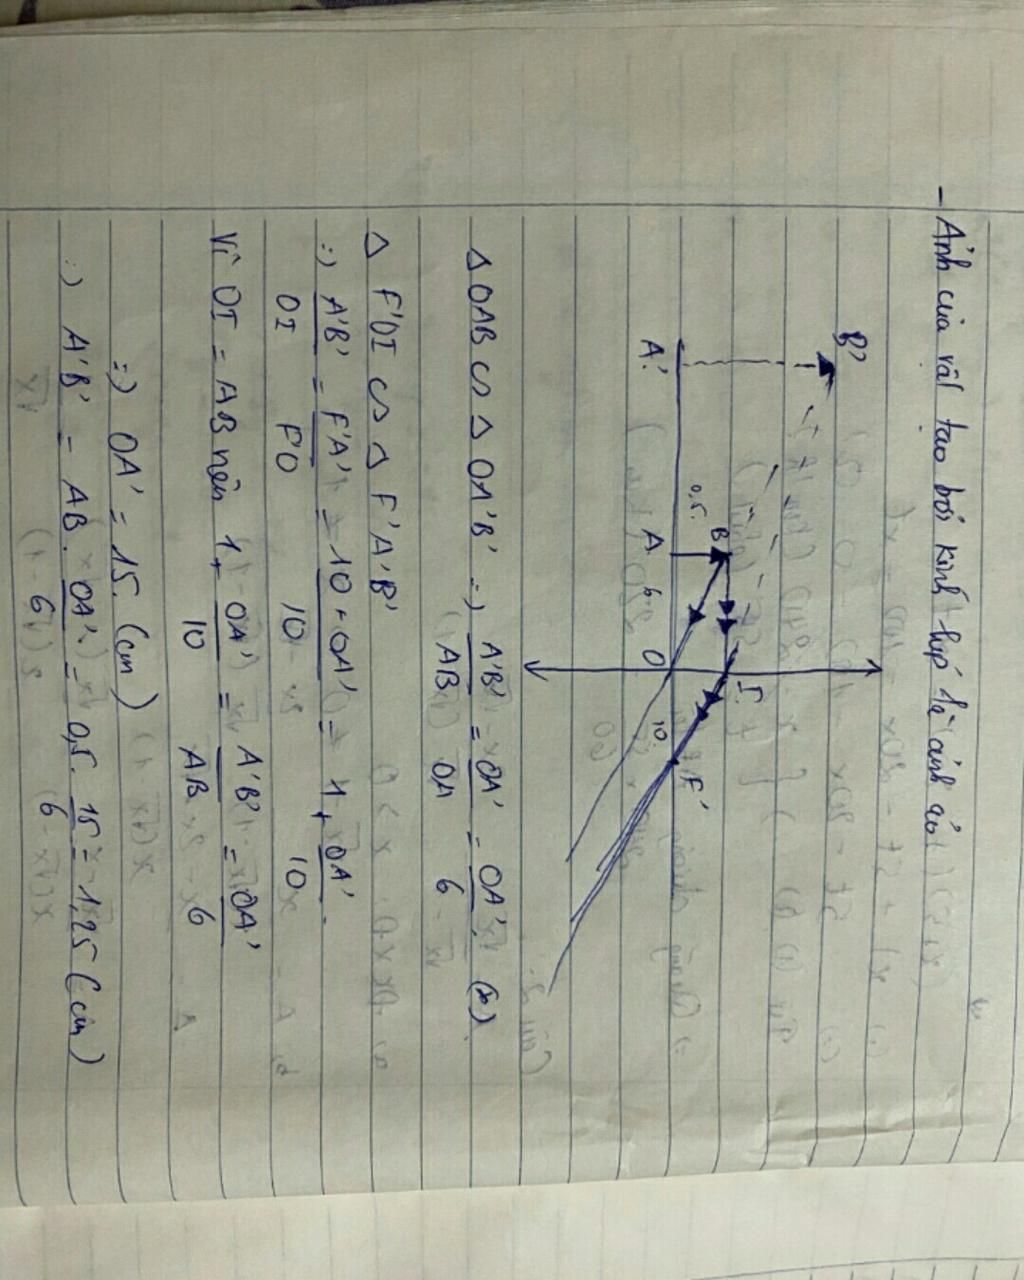 - Ảnh của vật tạo bởi kính lúp là ảnh ảo
B'
A'
B
0,5
A
6
O
I
10
F'
Δ OAB ∽ Δ OA'B' =) A'B'/AB = OA'/OA = OA'/6 (*).
Δ F'OI ∽ Δ F'A'B'
=) A'B'/OI = F'A'/F'O = 10 + OA'/10 = 1 + OA'/10.
Vì OI = AB nên 1 + OA'/10 = A'B'/AB = OA'/6
=) OA' = 15 (cm)
=) A'B' = AB. OA'/6 = 0,5. 15/6 = 1,25 (cm)